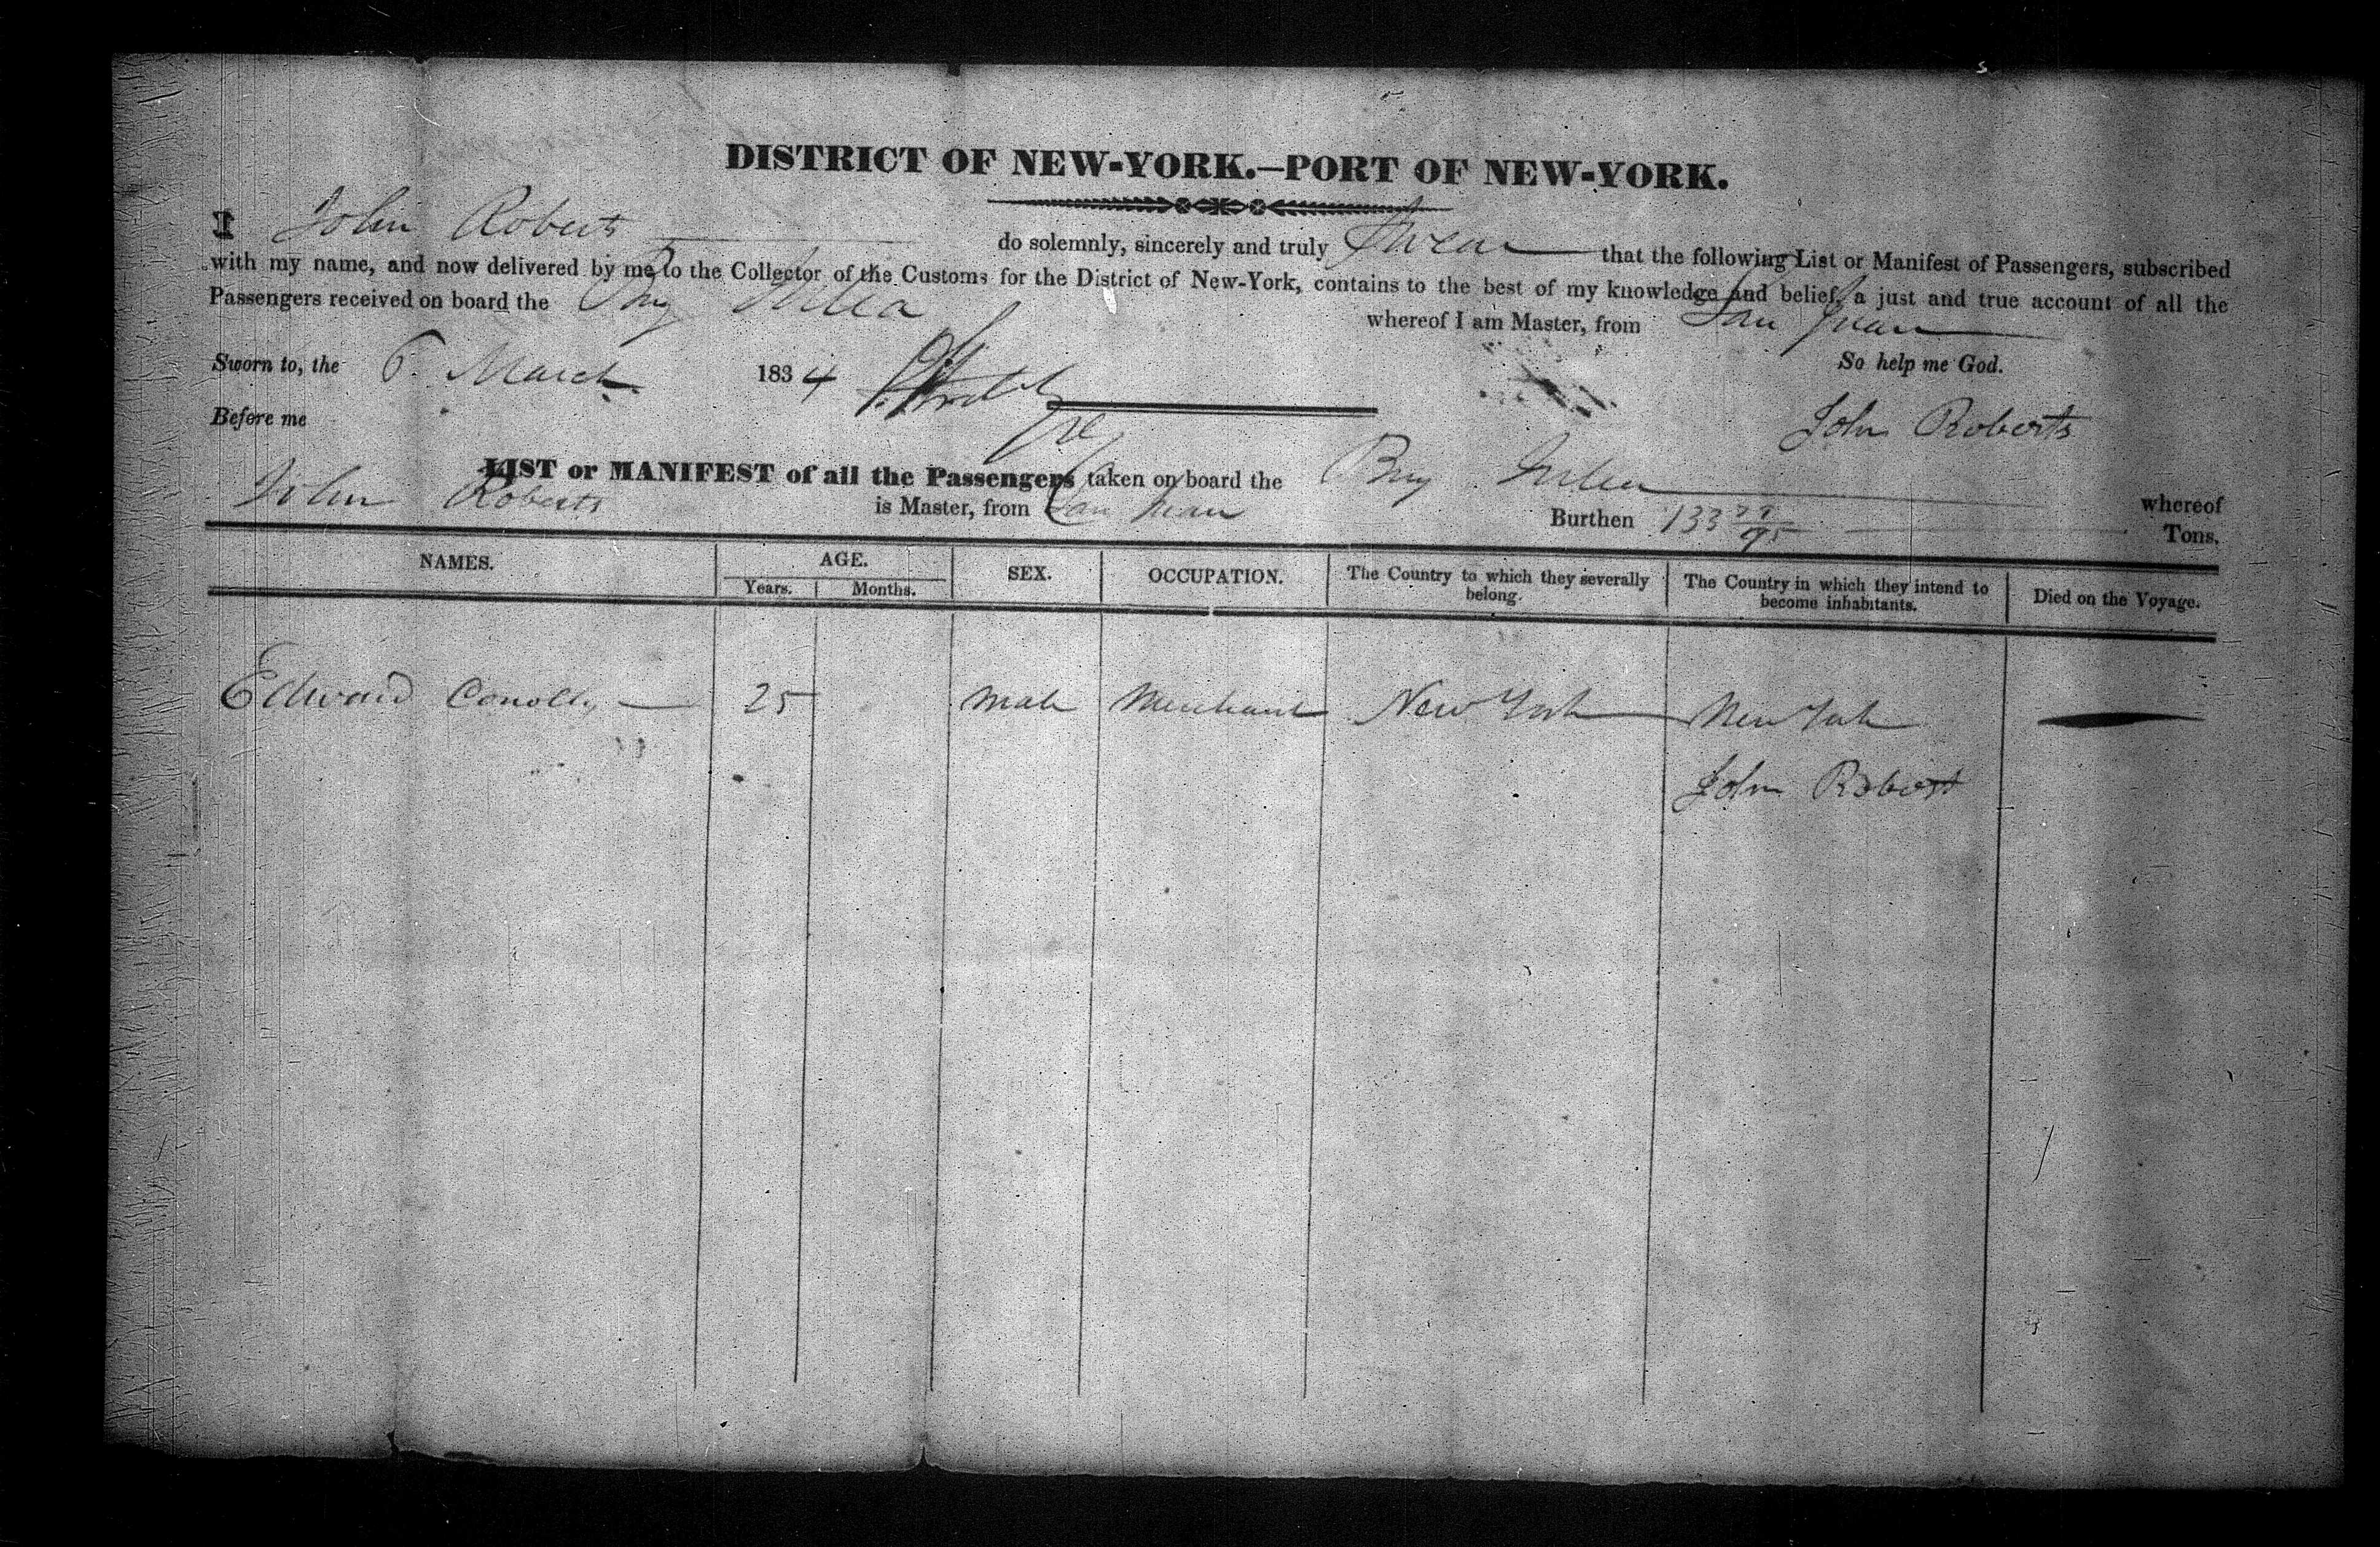 DISTRICT OF NEW-YORK.—PORT OF NEW-YORK.
I John Roberts do solemnly, sincerely and truly Swear that the following List or Manifest of Passengers, subscribed
with my name, and now delivered by me to the Collector of the Customs for the District of New-York, contains to the best of my knowledge and belief, a just and true account of all the
Passengers received on board the Brig whereof I am Master, from San Juan
Sworn to, the 6 March 1834 So help me God.
Before me John Roberts
LIST or MANIFEST of all the Passengers taken on board the Brig whereof
John Roberts is Master, from San Juan Burthen 133 /95 Tons.
NAMES. AGE. SEX. OCCUPATION. The Country to which they severally belong. The Country in which they intend to become inhabitants. Died on the Voyage.
Years. Months.
Edward Conolly 25 Male Merchant New York New York
John Roberts